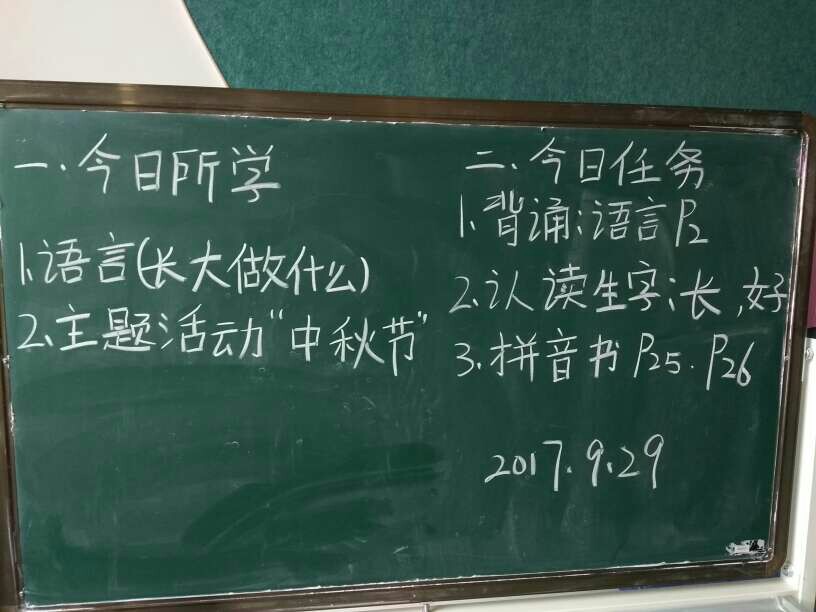 一、今日所学
1.语言(长大做什么)
2.主题活动“中秋节”
二、今日任务
1.背诵:语言P2
2.认读生字:长,好
3.拼音书 P25.P26
2017.9.29